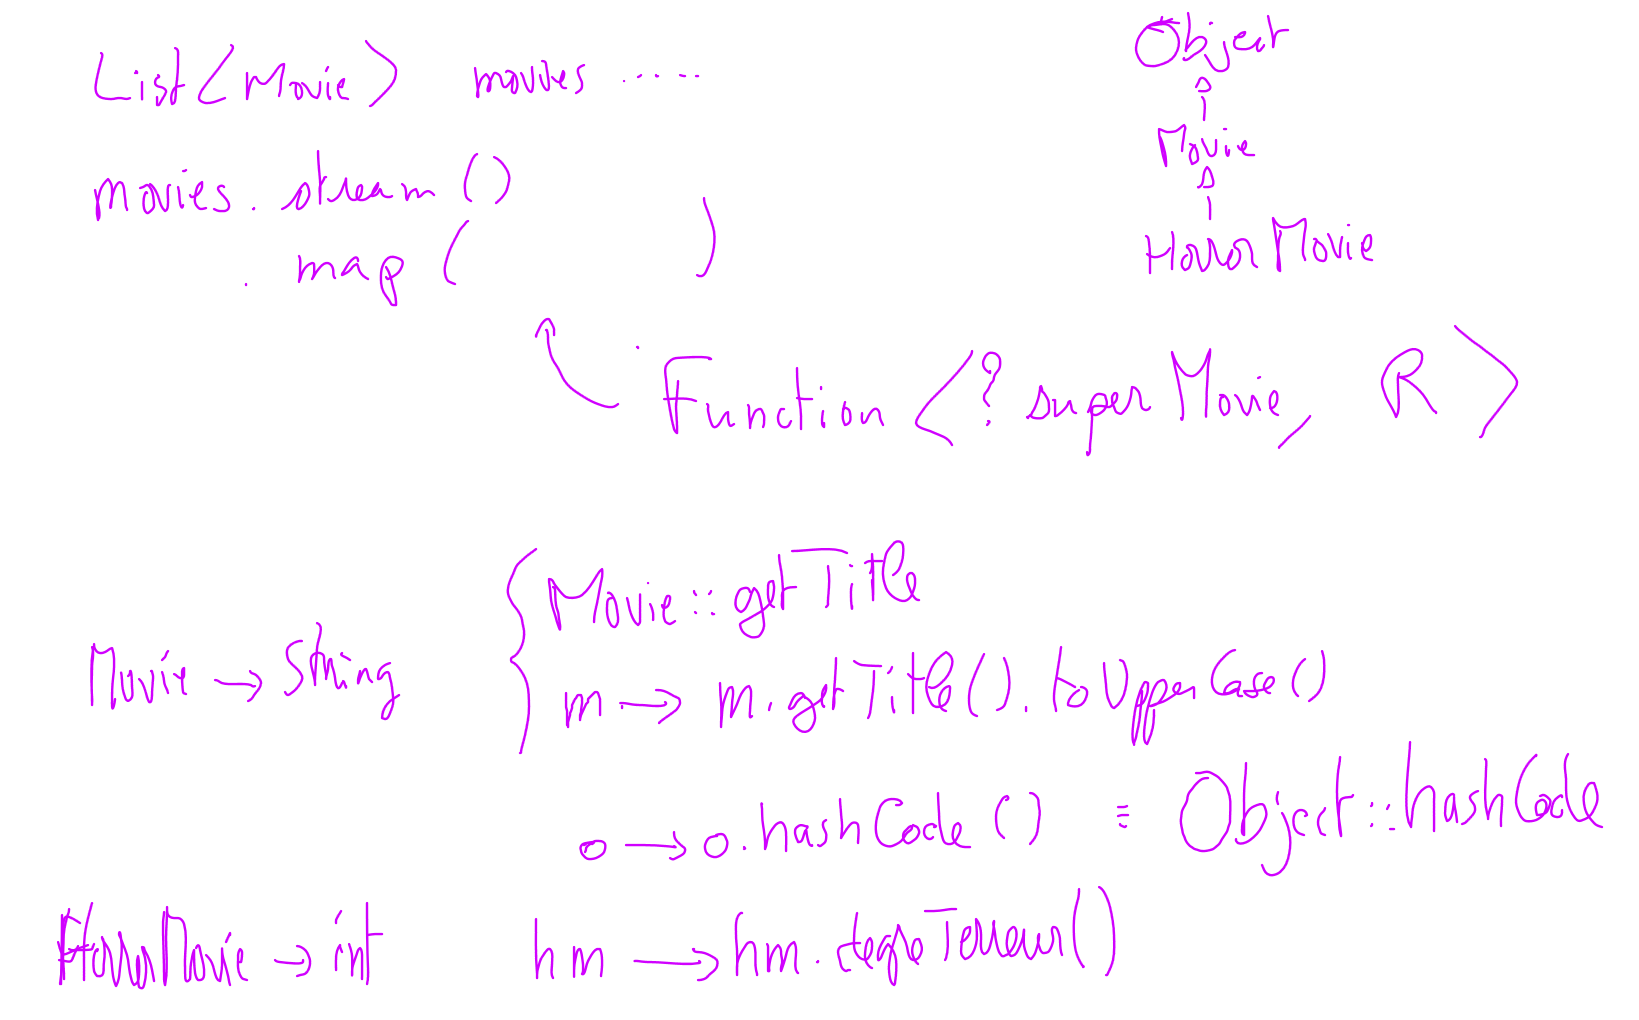 List<Movie> movies .....
Object
Movie
HorrorMovie
movies. stream ()
. map ( )
Function <? super Movie, R>
Movie → String
Movie::getTitle
m → m.getTitle().toUpperCase()
o → o.hashCode() ≡ Object::hashCode
HorrorMovie → int hm → hm.degreTerreur()